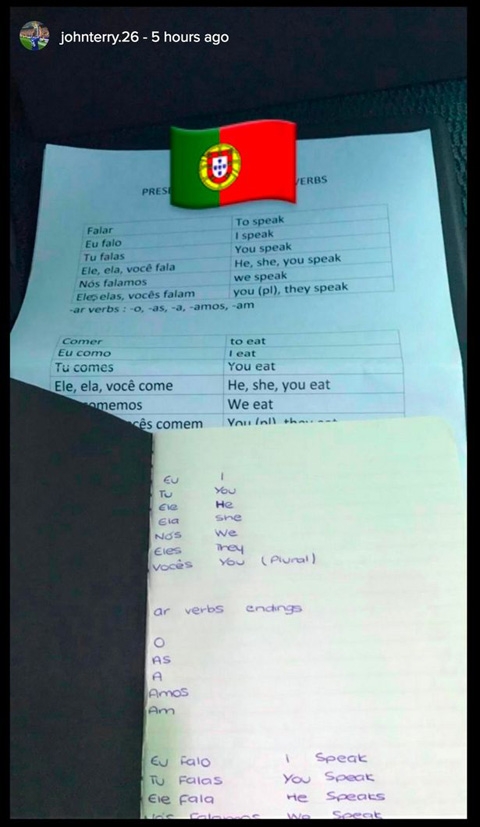 johnterry.26 - 5 hours ago
VERBS
Falar To speak
Eu falo I speak
Tu falas You speak
Ele, ela, você fala He, she, you speak
Nós falamos we speak
Eles, elas, vocês falam you (pl), they speak
-ar verbs : -o, -as, -a, -amos, -am
Comer to eat
Eu como I eat
Tu comes You eat
Ele, ela, você come He, she, you eat
We eat
comem You (pl), they eat
Eu I
Tu You
Ele He
Ela she
Nós We
Eles They
Vocês You (Plural)
ar verbs endings
O
AS
A
Amos
Am
Eu Falo I Speak
Tu Falas You Speak
Ele Fala He Speaks
Nós Falamos We Speak